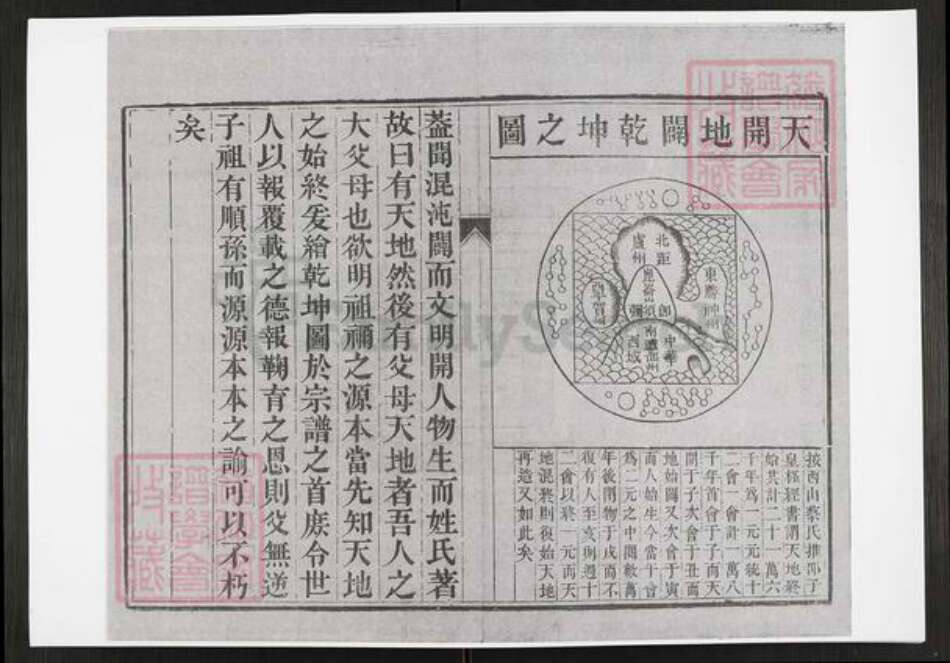 天開地闢乾坤之圖
北
距
盧
州
東
中華
西域
按西山蔡氏推邵子
皇極經書謂天地終
始共計二十一萬六
千年為一元元統十
二會一會計一萬八
千年首會于子而天
開于子次會于丑而
地始闢又次會于寅
而人始生今當十首
為二元之中閱數萬
年後閉物于戌而不
復有人至亥則週十
二會以終一元而天
地混終則復始天地
再造又如此矣
蓋聞混沌闢而文明開人物生而姓氏著
故曰有天地然後有父母天地者吾人之
大父母也欲明祖禰之源本當先知天地
之始終爰繪乾坤圖於宗譜之首庻令世
人以報覆載之德報鞠育之恩則父無逆
子祖有順孫而源源本本之諭可以不朽
矣